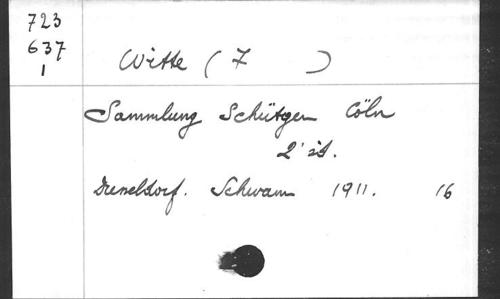 723
637
1
Witte ( F )
Sammlung Schütgen Cöln
2' éd.
Dusseldorf. Schwann 1911. 16